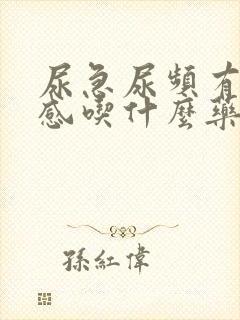 尿急尿頻有
感喫什麼藥
孫紅偉